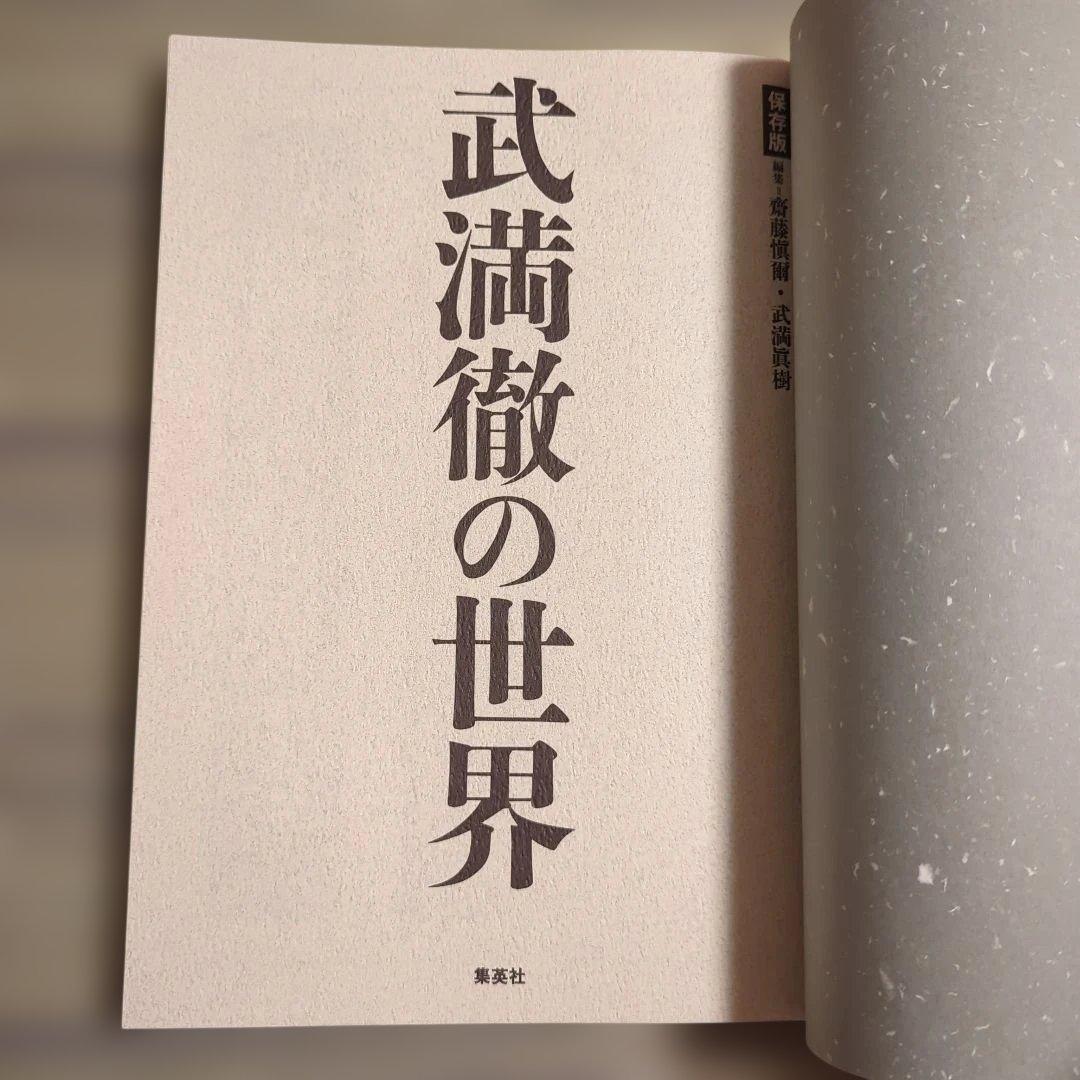 保存版
編集=齋藤愼爾・武満眞樹
武満徹の世界
集英社